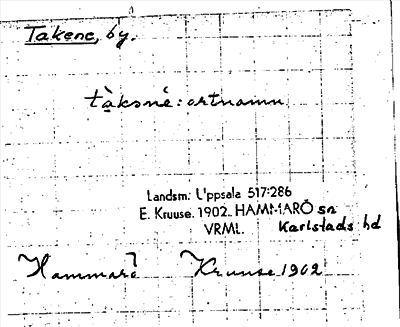 Takene, by.
tàksnè: ortnamn
Landsm. Uppsala 517:286
E. Kruuse. 1902. HAMMARÖ sn
VRML. Karlstads hd
Hammarö Kruuse 1902